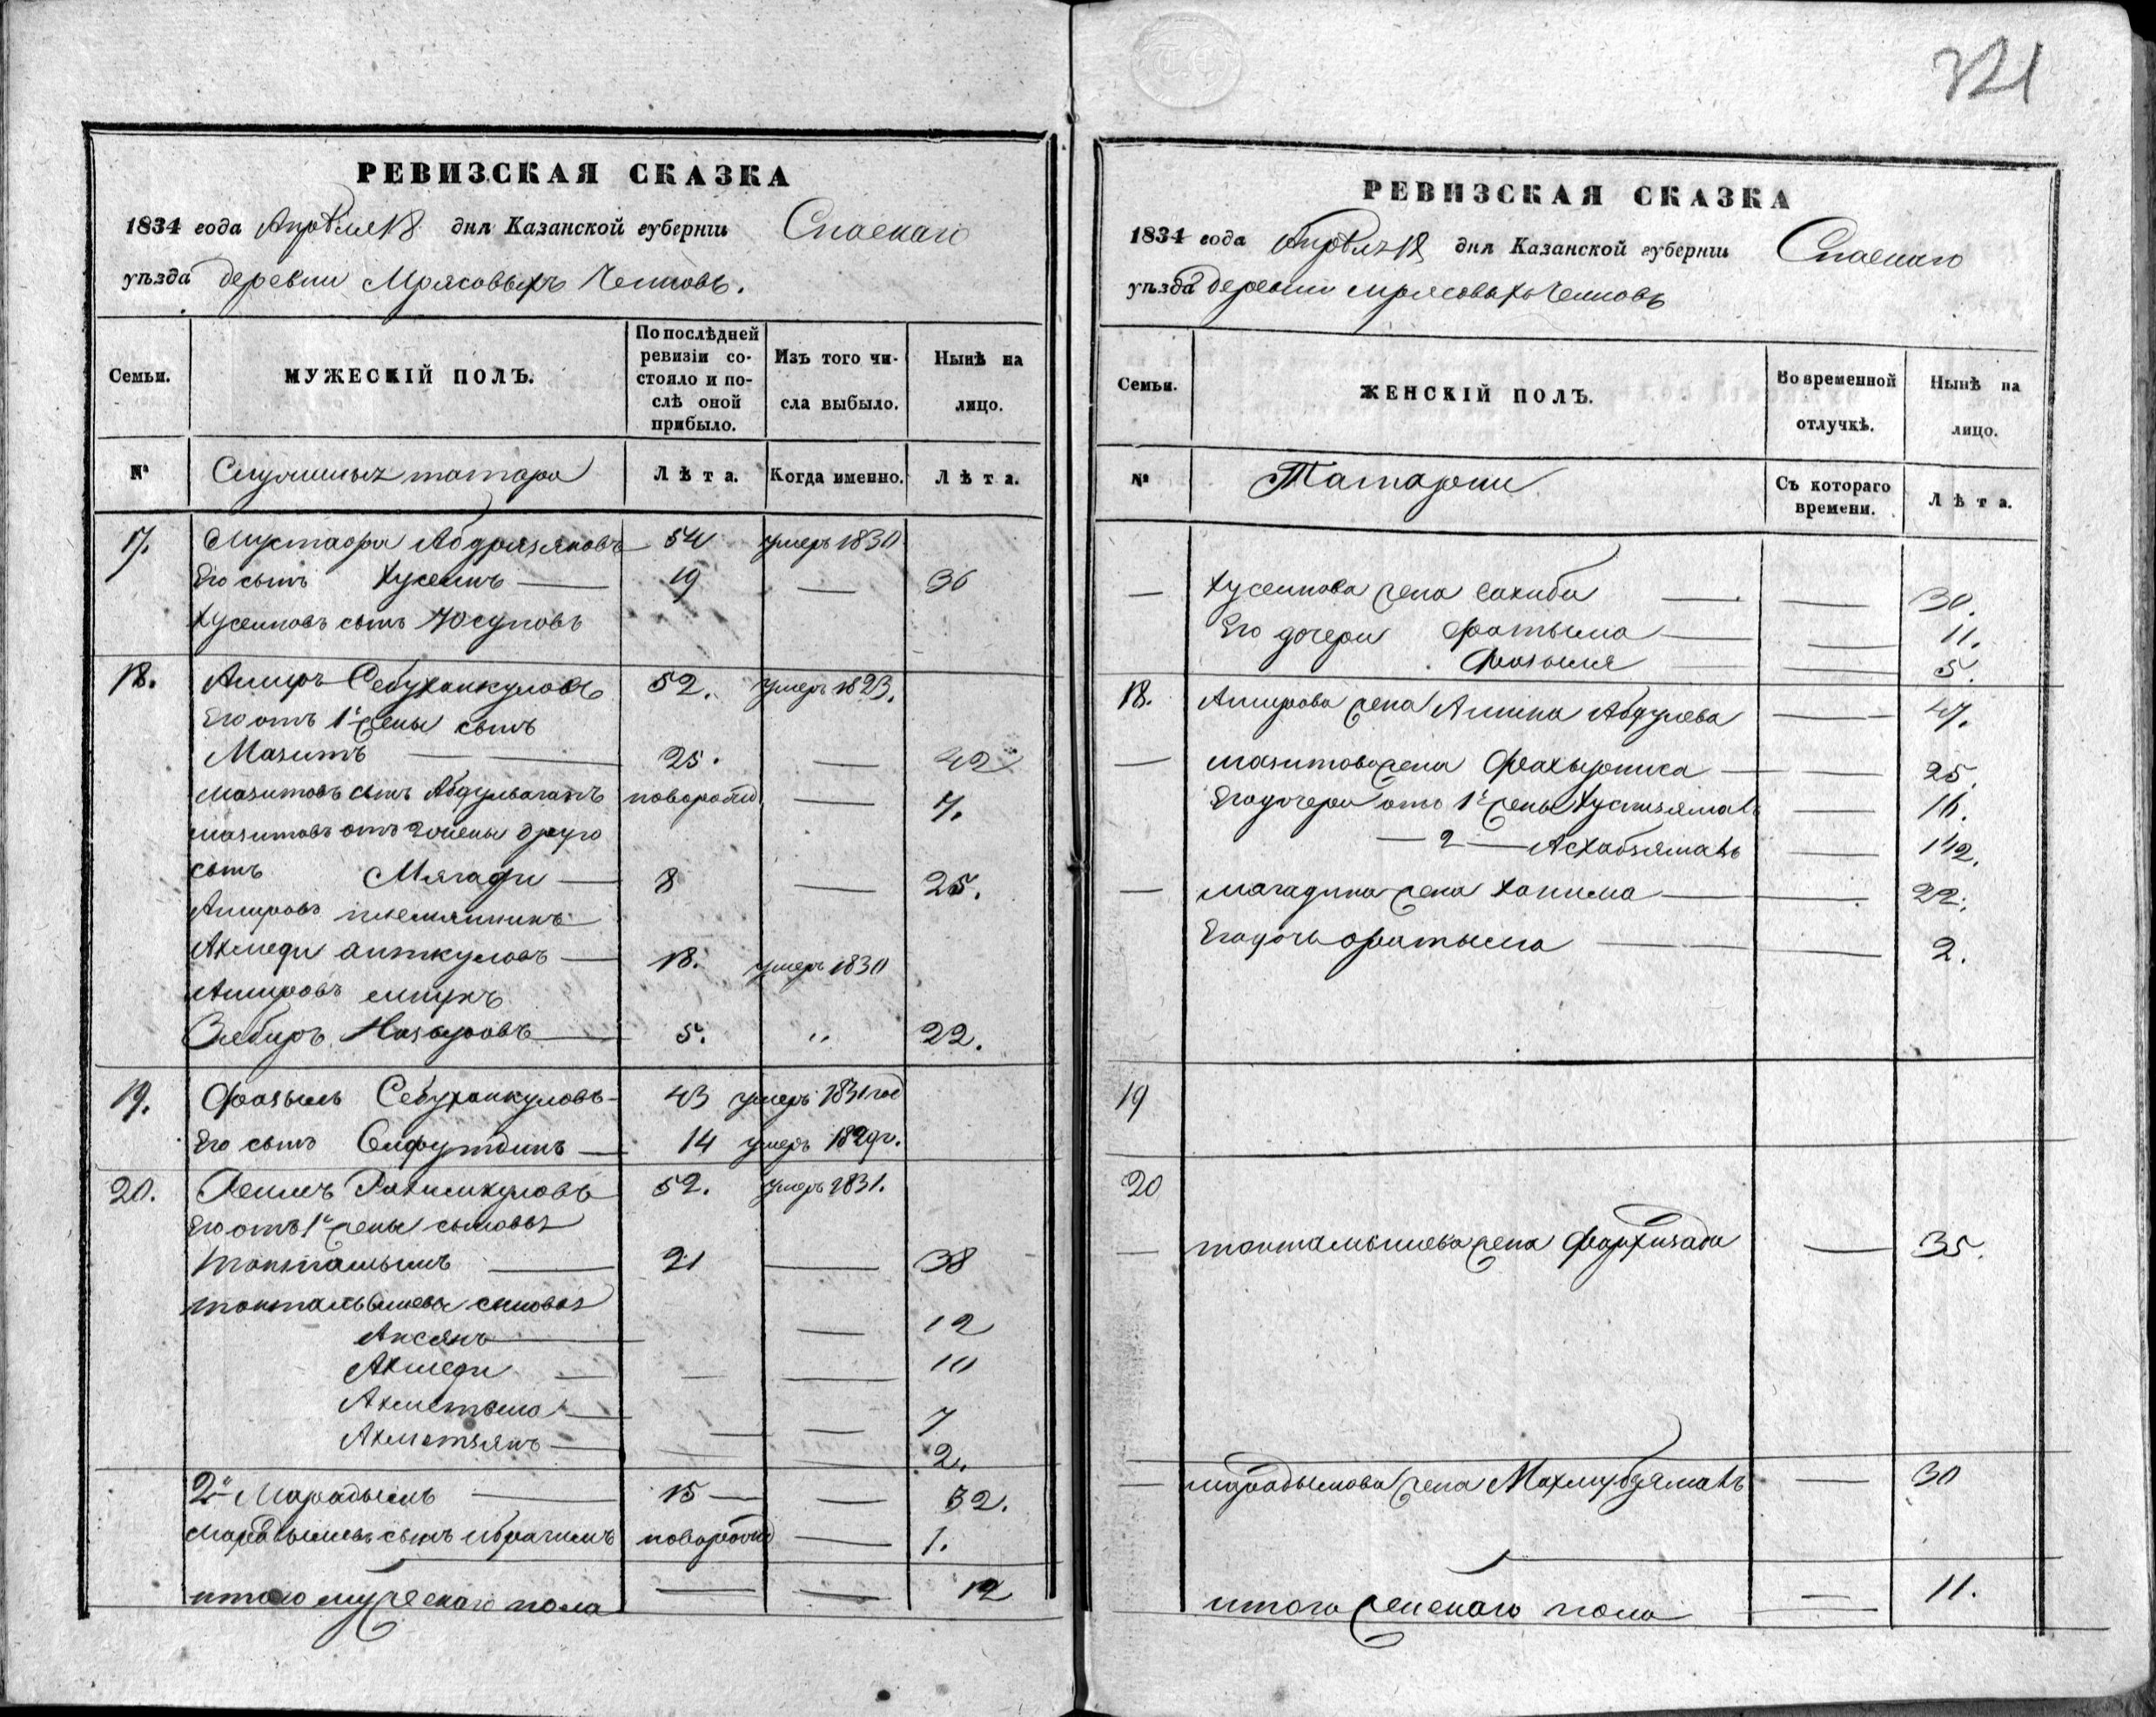 РЕВИЗСКАЯ СКАЗКА
1834 года Апреля 18 дня Казанской губернiи Спаскаго
уѣзда деревни Мрясовыхъ Челновъ.
Семьи.
МУЖЕСКІЙ ПОЛЪ.
По послѣдней ревизіи состояло и послѣ оной прибыло.
Изъ того числа выбыло.
Нынѣ на лицо.
№ Служилыхъ татаръ Лѣта. Когда именно. Лѣта.
17. Мустафа Абдрязяковъ 54 умеръ 1830
Его сынъ Хусеинъ — 19 — 36
Хусеиновъ сынъ Юсуповъ
18. Амиръ Себухankуловъ 52. умеръ 1823.
Его отъ 1й жены сынъ
Мазитъ — 25. — 42
Мазитовъ сынъ Абдулвагапъ новорожд — 7.
Мазитовъ отъ 2 жены друго
сынъ Мягади — 8 — 25.
Амировъ племянникъ
Ахмеди Аиткуловъ — 18. умеръ 1830
Амировъ внукъ
Зябиръ Назыровъ — 5. " 22.
19. Фазылъ Себуханкуловъ 43 умеръ 1831 год
Его сынъ Сифутдинъ — 14 умеръ 1829 г.
20. Рахимкуловъ 52. умеръ 1831.
Его отъ 1й жены сыновья
Токтамышъ — 21 — 38
Токтамышевы сыновья
Аксянъ — — 12
Ахмеди — — — 10
— — — 7
Ахметзянъ — — — 2.
2й Марадымъ — 15 — — 32.
Марадымовъ сынъ Ибрагимъ новорожд — 1.
итого мужескаго пола — — 12
321
РЕВИЗСКАЯ СКАЗКА
1834 года Апреля 18 дня Казанской губернiи Спаскаго
уѣзда деревни Мрясовыхъ Челновъ
Семьи.
ЖЕНСКІЙ ПОЛЪ.
Во временной отлучкѣ.
Нынѣ на лицо.
№ Татарки Съ котораго времени. Лѣта.
— Хусеинова жена Сахиба — — 30.
Его дочери Фатыма — — 11.
Фазыля — — 5.
18. Амирова жена Амина Абдулева — 47.
— Мазитова жена Фахырниса — — 25.
Его дочери отъ 1й жены — 16.
— 2 — Асхабзямалъ — 1/2.
— Магадина жена Ханима — — 22.
Его дочь Фатыма — — 2.
19
20
— Токтамышева жена Фархизада — 35.
— Марадымова жена Махмубзямалъ — 30
итого женскаго пола — 11.